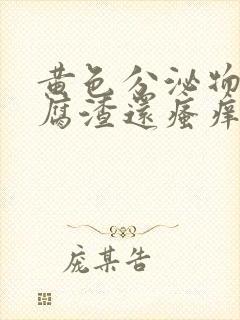 黄色分泌物
腐渣还瘙痒
庞某告